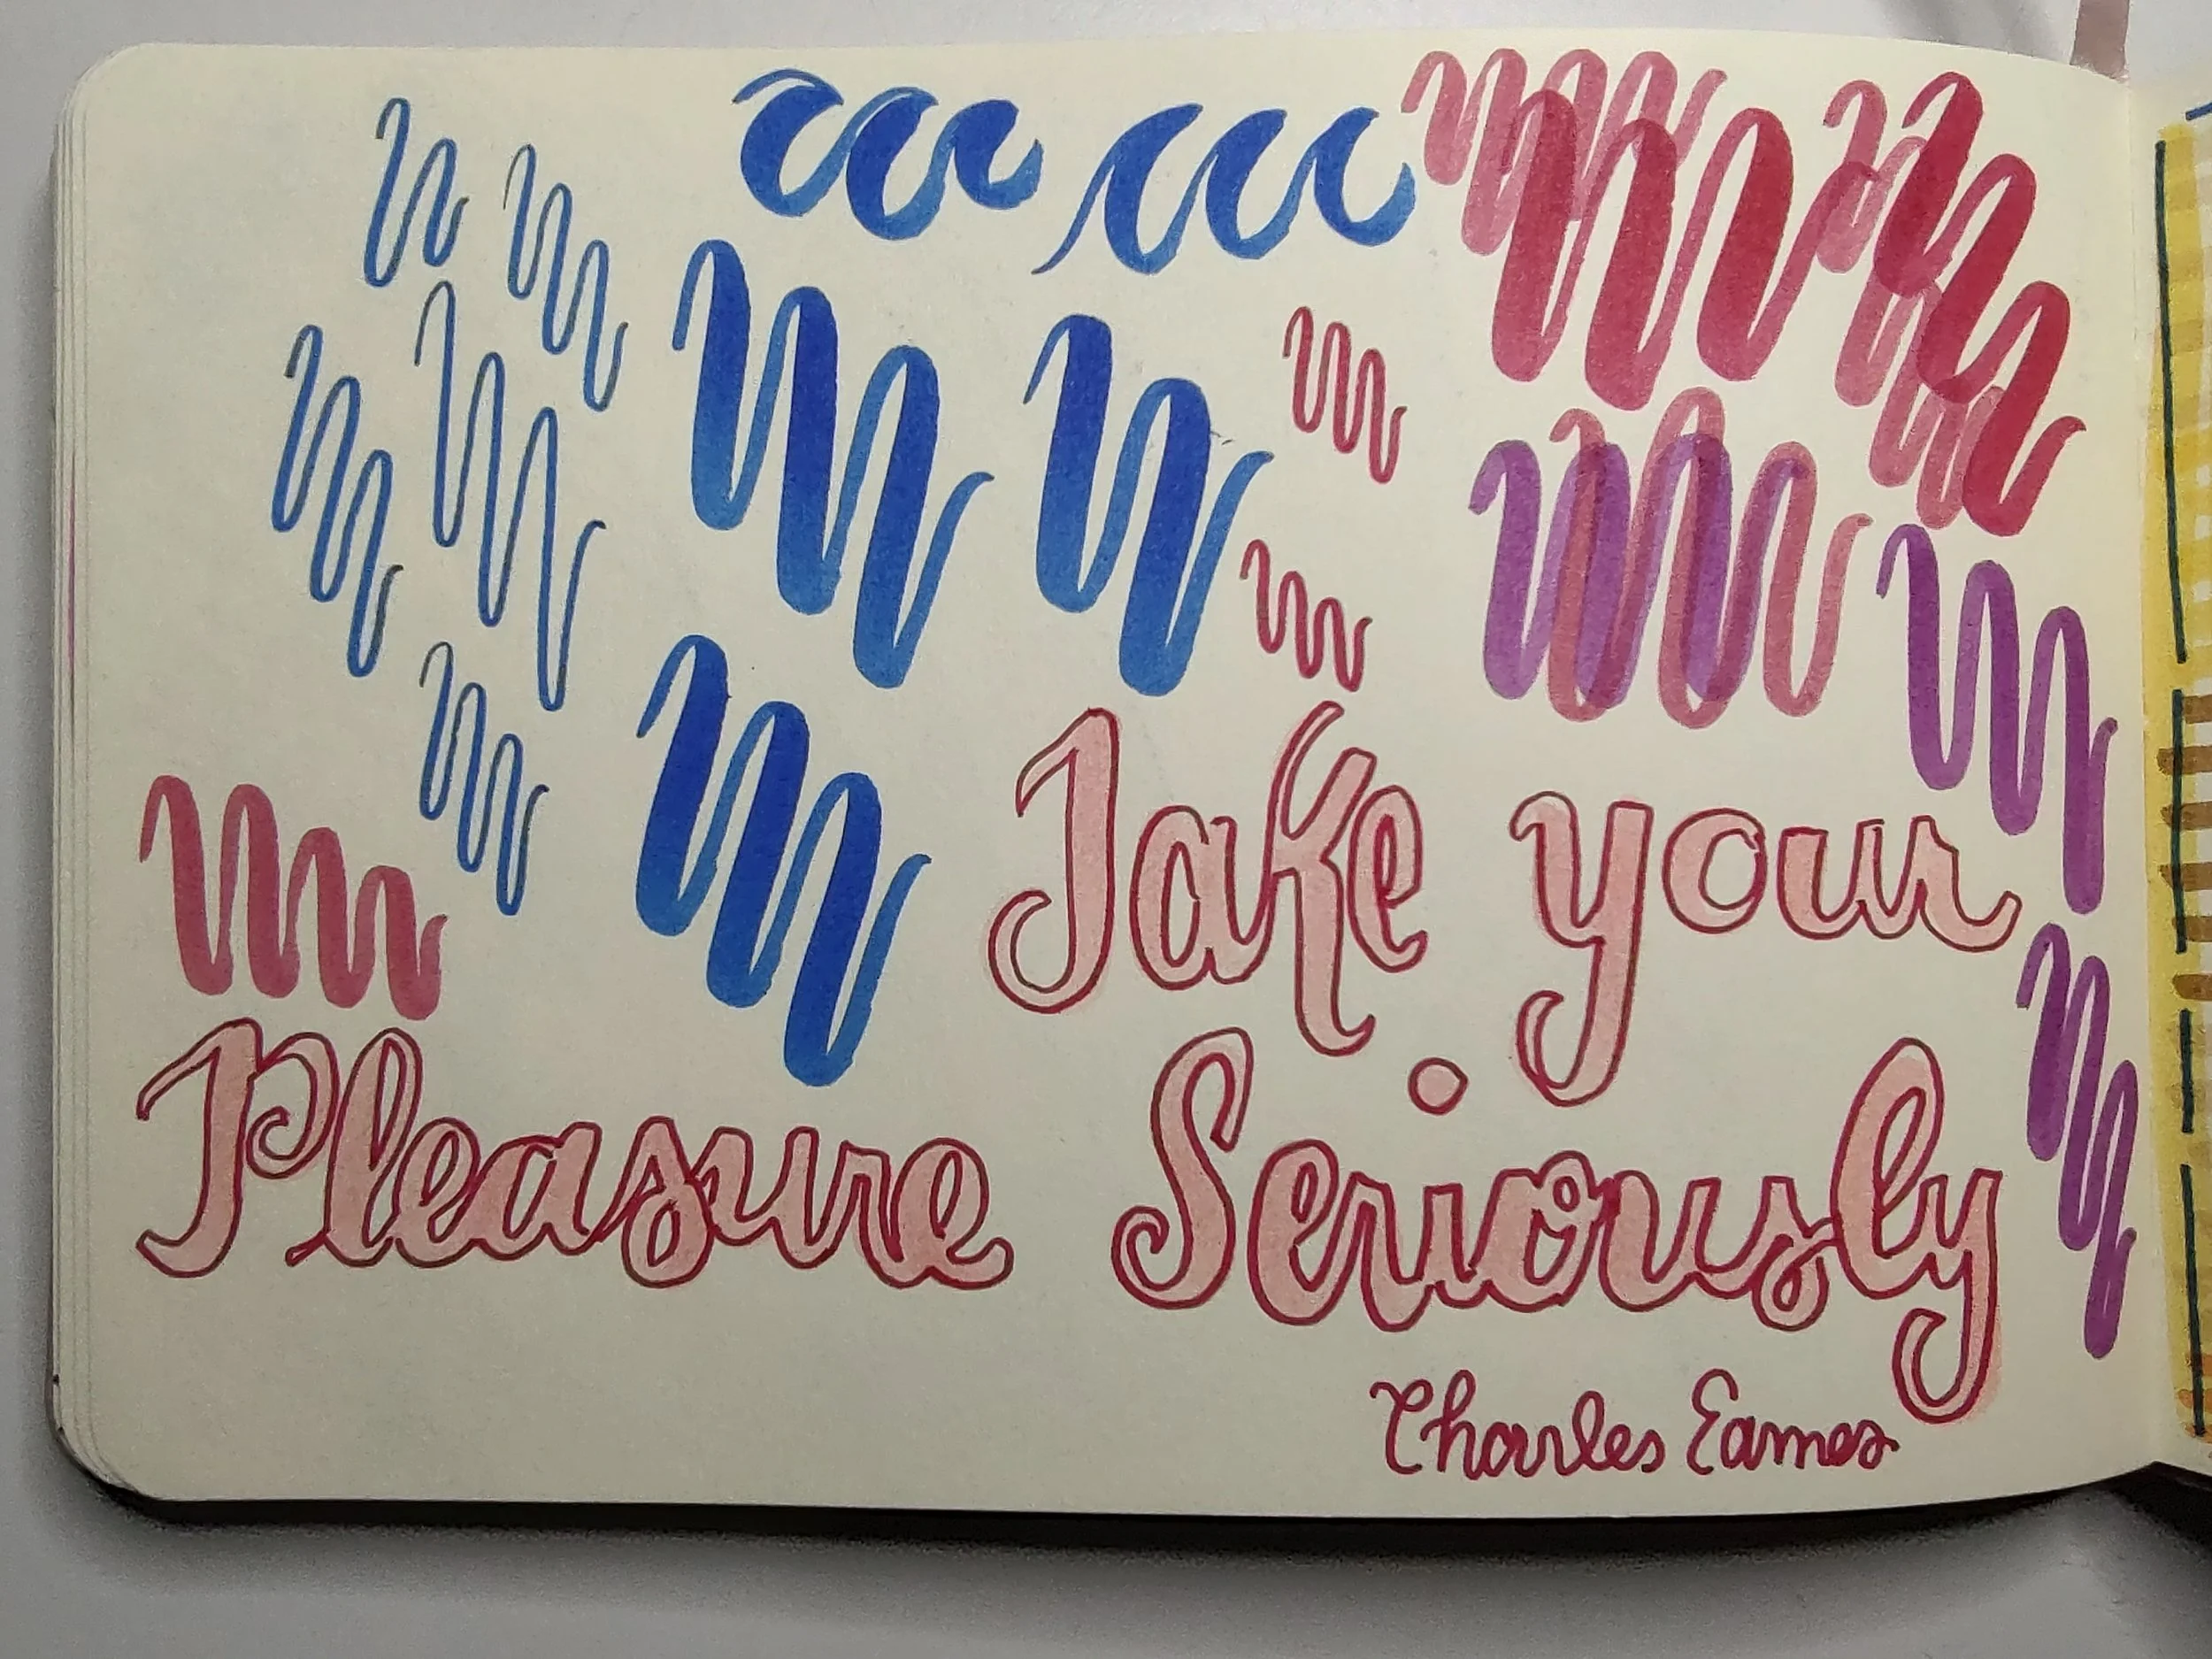 Take your
Pleasure Seriously
Charles Eames